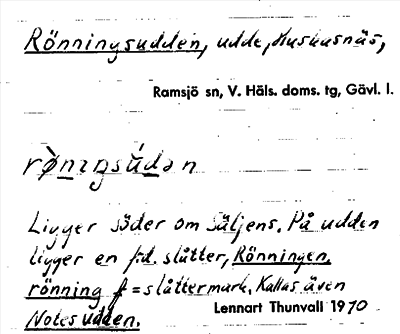 Rönningsudden, udde, Huskasnäs,
Ramsjö sn, V. Häls. doms. tg, Gävl. l.
rȯ̀nıŋsúdən
Ligger söder om Säljens. På udden
ligger en f.d. slåtter, Rönningen,
rönning f = slåttermark, Kallas även
Notesudden.
Lennart Thunvall 1970